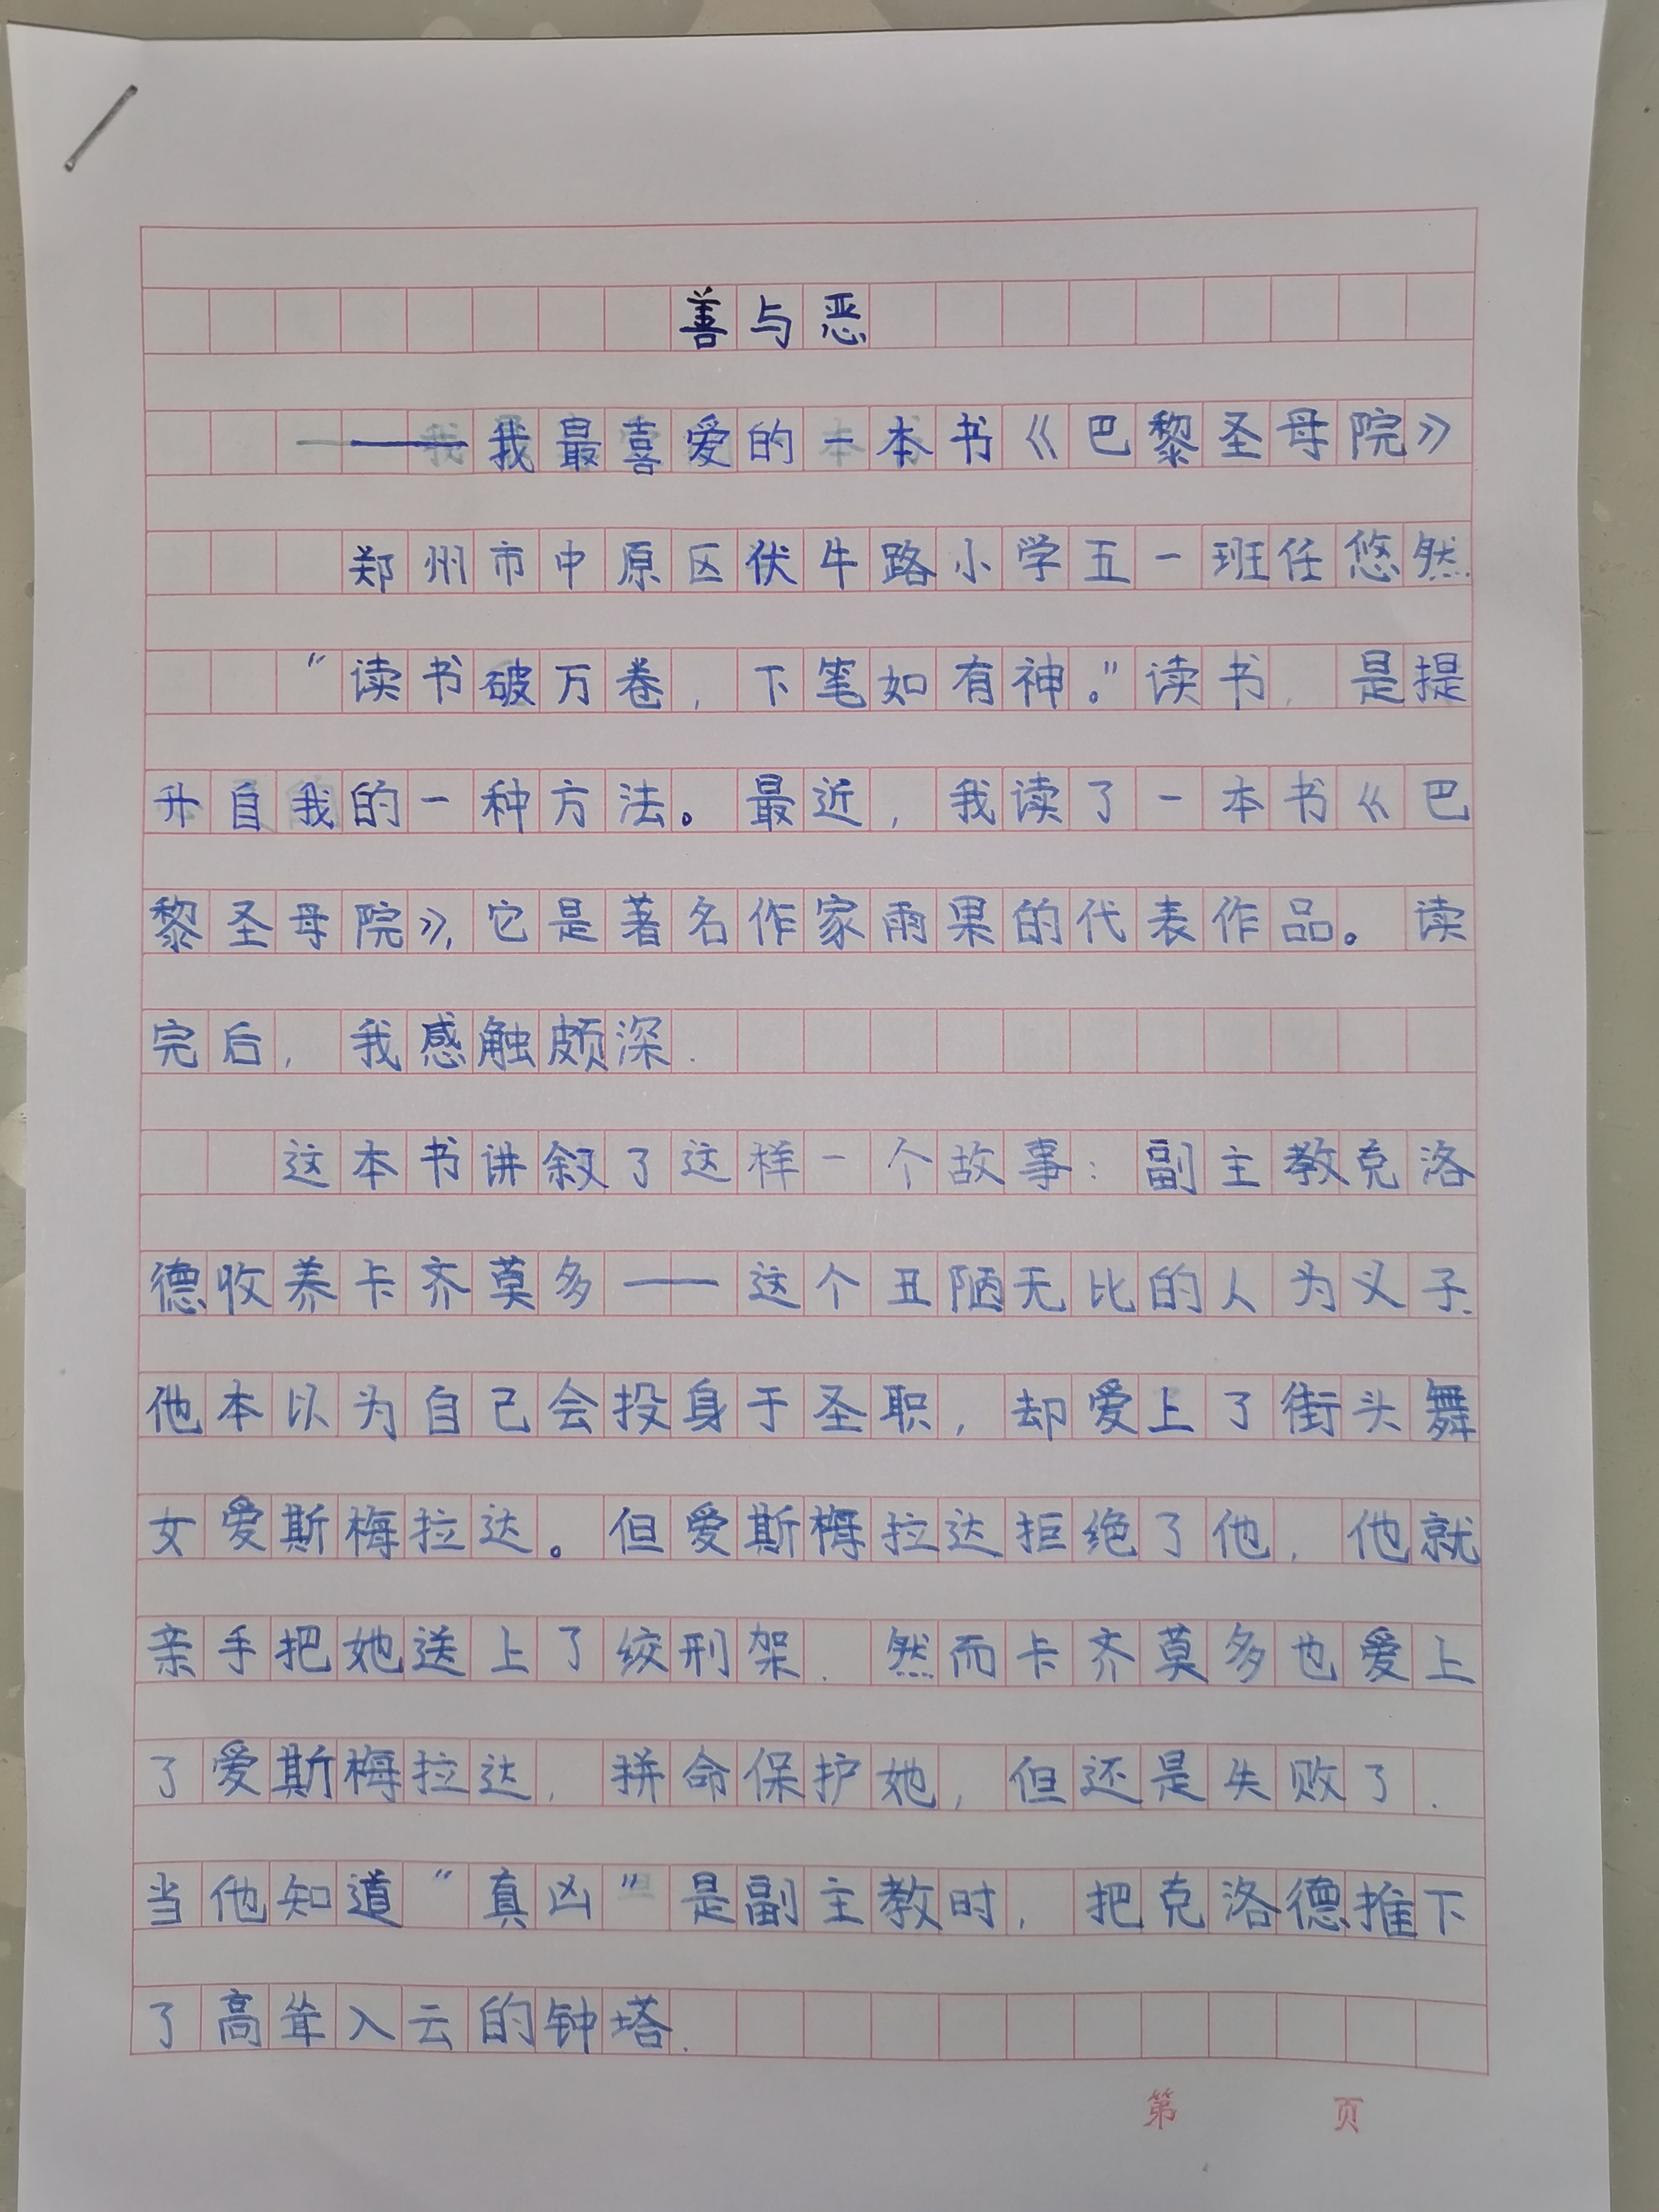 善与恶
——我最喜爱的一本书《巴黎圣母院》
郑州市中原区伏牛路小学五一班任悠然
“读书破万卷，下笔如有神。”读书，是提
升自我的一种方法。最近，我读了一本书《巴
黎圣母院》，它是著名作家雨果的代表作品。读
完后，我感触颇深.
这本书讲叙了这样一个故事：副主教克洛
德收养卡齐莫多——这个丑陋无比的人为义子.
他本以为自己会投身于圣职，却爱上了街头舞
女爱斯梅拉达。但爱斯梅拉达拒绝了他，他就
亲手把她送上了绞刑架.然而卡齐莫多也爱上
了爱斯梅拉达，拼命保护她，但还是失败了.
当他知道“真凶”是副主教时，把克洛德推下
了高耸入云的钟塔.
第 页